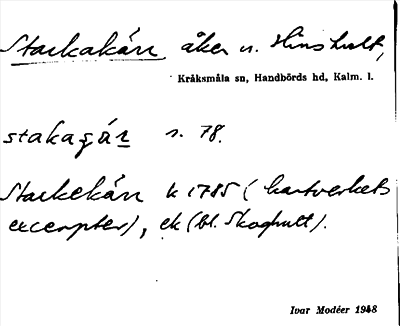 Starkakärr åker u. Hinshult,
Kråksmåla sn, Handbörds hd, Kalm. l.
stakagär s. 78.
Starkekärr k 1785 (kartverkets
excerpter), ek (bl. Skoghult).
Ivar Modéer 1948